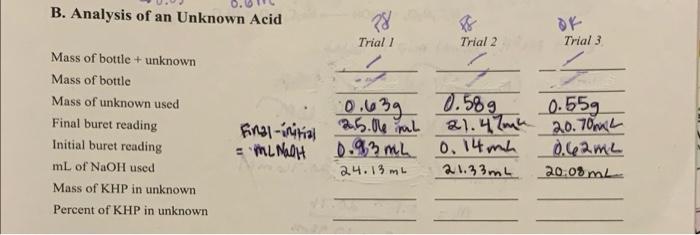 B. Analysis of an Unknown Acid
OK
Trial 1 Trial 2 Trial 3
Mass of bottle + unknown
Mass of bottle
Mass of unknown used 0.63g 0.58g 0.55g
Final buret reading 25.06 mL 21.47mL 20.70mL
Final-initial
Initial buret reading 0.93 mL 0.14mL 0.62mL
= mL NaOH
mL of NaOH used 24.13 mL 21.33mL 20.08mL
Mass of KHP in unknown
Percent of KHP in unknown